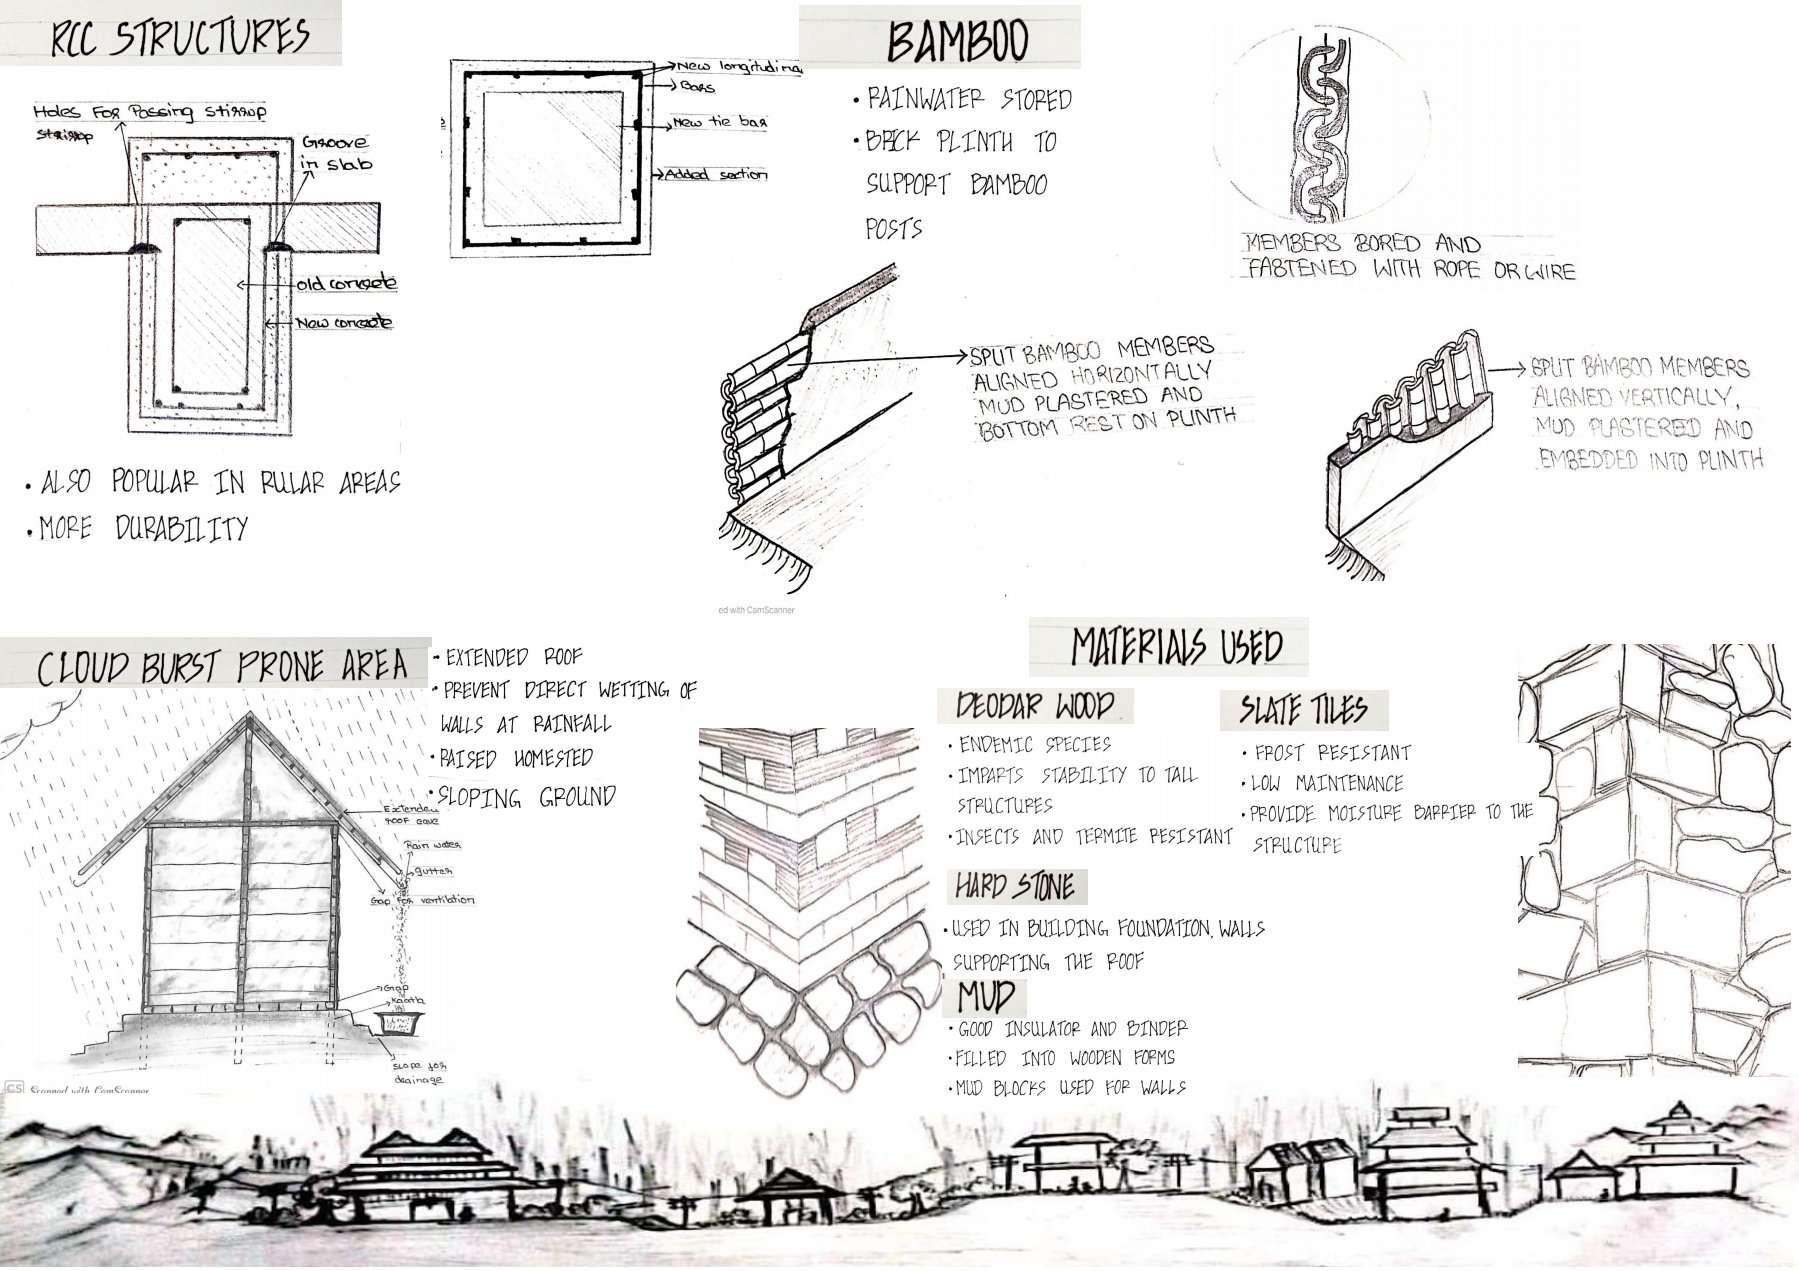 RCC STRUCTURES
Holes For Passing stirrup
Groove
in slab
old concrete
New concrete
• ALSO POPULAR IN RULAR AREAS
• MORE DURABILITY
New longitudina
Bars
New tie bar
Added section
BAMBOO
• RAINWATER STORED
• BRICK PLINTH TO
SUPPORT BAMBOO
POSTS
MEMBERS BORED AND
FASTENED WITH ROPE OR WIRE
SPLIT BAMBOO MEMBERS
ALIGNED HORIZONTALLY
MUD PLASTERED AND
BOTTOM REST ON PLINTH
SPLIT BAMBOO MEMBERS
ALIGNED VERTICALLY,
MUD PLASTERED AND
EMBEDDED INTO PLINTH
ed with CamScanner
CLOUD BURST PRONE AREA
• EXTENDED ROOF
• PREVENT DIRECT WETTING OF
WALLS AT RAINFALL
• RAISED HOMESTED
• SLOPING GROUND
Extended
roof eave
Rain water
gutter
Gap for ventilation
Gap
slope for
drainage
CS Scanned with CamScanner
MATERIALS USED
DEODAR WOOD
• ENDEMIC SPECIES
• IMPARTS STABILITY TO TALL
STRUCTURES
• INSECTS AND TERMITE RESISTANT
SLATE TILES
• FROST RESISTANT
• LOW MAINTENANCE
• PROVIDE MOISTURE BARRIER TO THE
STRUCTURE
HARD STONE
• USED IN BUILDING FOUNDATION, WALLS
SUPPORTING THE ROOF
MUD
• GOOD INSULATOR AND BINDER
• FILLED INTO WOODEN FORMS
• MUD BLOCKS USED FOR WALLS